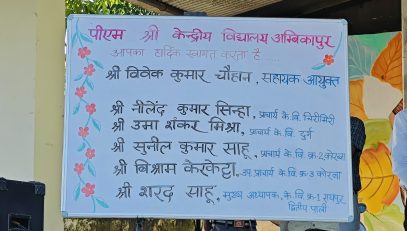 पीएम श्री केन्द्रीय विद्यालय अम्बिकापुर
आपका हार्दिक स्वागत करता है ....
श्री विवेक कुमार चौहान, सहायक आयुक्त
श्री नीलेंद कुमार सिन्हा, प्राचार्य के.वि. चिरीमिरी
श्री उमा शंकर मिश्रा, प्राचार्य के.वि. दुर्ग
श्री सुनील कुमार साहू, प्राचार्य के.वि. क्र-2, कोरबा
श्री बिश्राम केरकेट्टा, उप प्राचार्य के.वि. क्र-3 कोरबा
श्री शरद साहू, मुख्य अध्यापक, के.वि. क्र-1 रायपुर
द्वितीय पाली